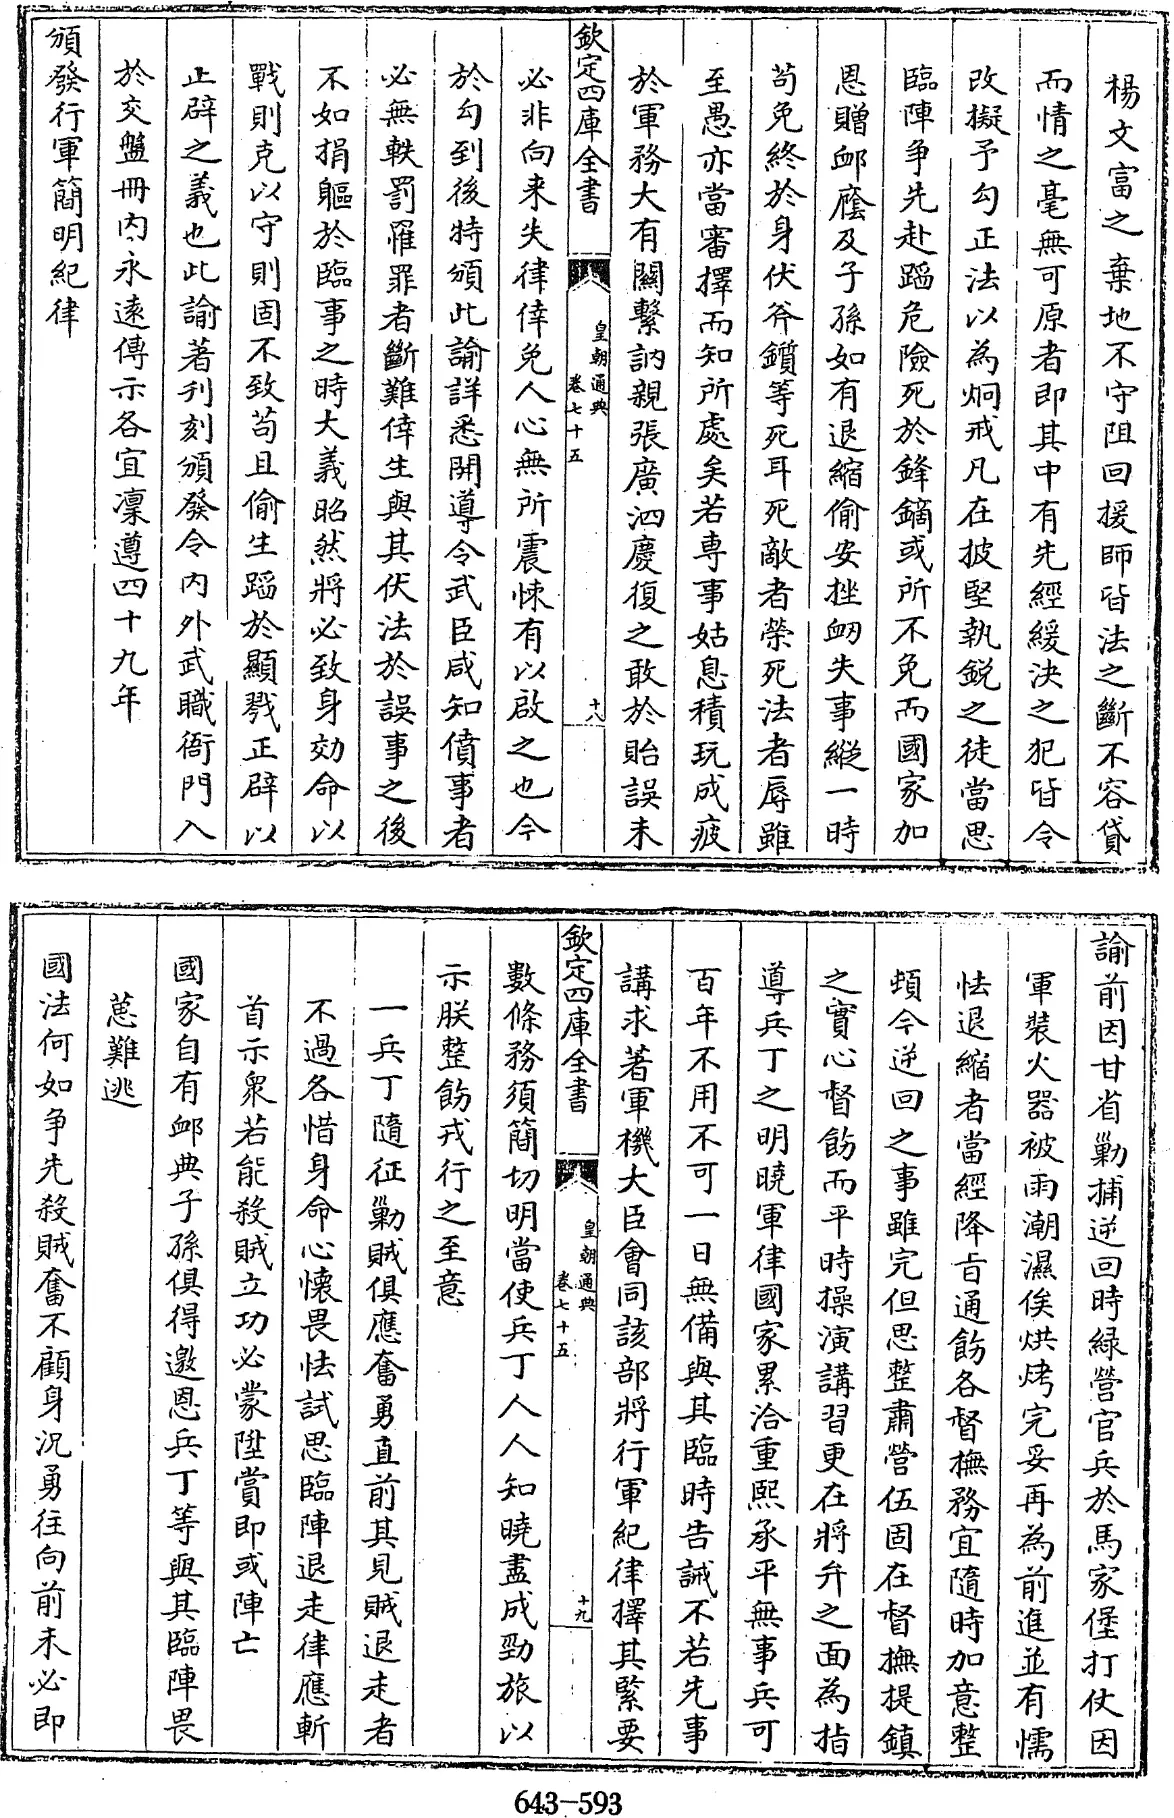 楊文富之棄地不守阻回援師皆法之斷不容貸
而情之毫無可原者即其中有先經緩決之犯皆令
改擬予勾正法以為炯戒凡在披堅執銳之徒當思
臨陣争先赴蹈危險死於鋒鏑或所不免而國家加
恩贈䘏廕及子孫如有退縮偷安挫衂失事縱一時
苟免終於身伏斧鑕等死耳死敵者榮死法者辱雖
至愚亦當審擇而知所處矣若專事姑息積玩成疲
於軍務大有關繫訥親張廣泗慶復之敢於貽誤未
欽定四庫全書
皇朝通典
卷七十五
十八
必非向来失律倖免人心無所震悚有以啟之也今
於勾到後特頒此諭詳悉開導令武臣咸知僨事者
必無軼罰罹罪者斷難倖生與其伏法於誤事之後
不如捐軀於臨事之時大義昭然將必致身効命以
戰則克以守則固不致苟且偷生蹈於顯戮正辟以
止辟之義也此諭著刋刻頒發令內外武職衙門入
於交盤冊內永遠傳示各宜凜遵四十九年
頒發行軍簡明紀律
諭前因甘省勦捕逆回時緑營官兵於馬家堡打仗因
軍裝火器被雨潮濕俟烘烤完妥再為前進並有懦
怯退縮者當經降旨通飭各督撫務宜隨時加意整
頓今逆回之事雖完但思整肅營伍固在督撫提鎮
之實心督飭而平時操演講習更在將弁之面為指
導兵丁之明曉軍律國家累洽重熙承平無事兵可
百年不用不可一日無備與其臨時告誡不若先事
講求著軍機大臣會同該部將行軍紀律擇其緊要
欽定四庫全書
皇朝通典
卷七十五
十九
數條務須簡切明當使兵丁人人知曉盡成勁旅以
示朕整飭戎行之至意
一兵丁隨征勦賊俱應奮勇直前其見賊退走者
不過各惜身命心懷畏怯試思臨陣退走律應斬
首示衆若能殺賊立功必蒙陞賞即或陣亡
國家自有䘏典子孫俱得邀恩兵丁等與其臨陣畏
葸難逃
國法何如争先殺賊奮不顧身況勇往向前未必即
643-593